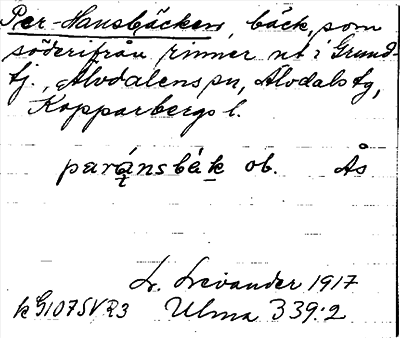 Per-Hansbäcken, bäck, som
söderifrån rinner ut i Grund-
tj., Älvdalens sn, Älvdals tg,
Kopparbergs l.
paránsbèk ob. Ås
L. Levander 1917
k G107SVR3 Ulma 339:2